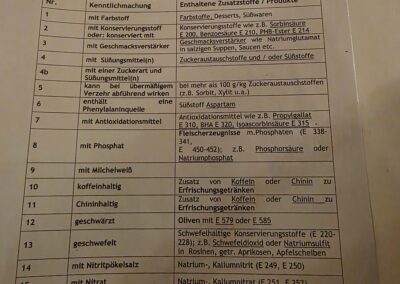 Nr. Kenntlichmachung Enthaltene Zusatzstoffe / Produkte
1 mit Farbstoff Farbstoffe, Desserts, Süßwaren
2 mit Konservierungsstoff oder: konserviert mit Konservierungsstoffe wie z.B. Sorbinsäure
E 200, Benzoesäure E 210, PHB-Ester E 214
3 mit Geschmacksverstärker Geschmacksverstärker wie Natriumglutamat
in salzigen Suppen, Saucen etc.
4 mit Süßungsmittel(n) Zuckeraustauschstoffe und / oder Süßstoffe
4b mit einer Zuckerart und
Süßungsmittel(n)
5 kann bei übermäßigem
Verzehr abführend wirken bei mehr als 100 g/kg Zuckeraustauschstoffen
(z.B. Sorbit, Xylit u.a.)
6 enthält eine
Phenylalaninquelle Süßstoff Aspartam
7 mit Antioxidationsmittel Antioxidationsmittel wie z.B. Propylgallat
E 310, BHA E 320, Isoascorbinsäure E 315
8 mit Phosphat Fleischerzeugnisse m.Phosphaten (E 338-
341,
E 450-452); z.B. Phosphorsäure oder
Natriumphosphat
9 mit Milcheiweiß
10 koffeinhaltig Zusatz von Koffein oder Chinin zu
Erfrischungsgetränken
11 Chininhaltig Zusatz von Koffein oder Chinin zu
Erfrischungsgetränken
12 geschwärzt Oliven mit E 579 oder E 585
13 geschwefelt Schwefelhaltige Konservierungsstoffe (E 220-
228); z.B. Schwefeldioxid oder Natriumsulfit
in Rosinen, getr. Aprikosen, Apfelscheiben
14 mit Nitritpökelsalz Natrium-, Kaliumnitrit (E 249, E 250)
15 mit Nitrat Natrium-, Kaliumnitrat (E 251, E 252)